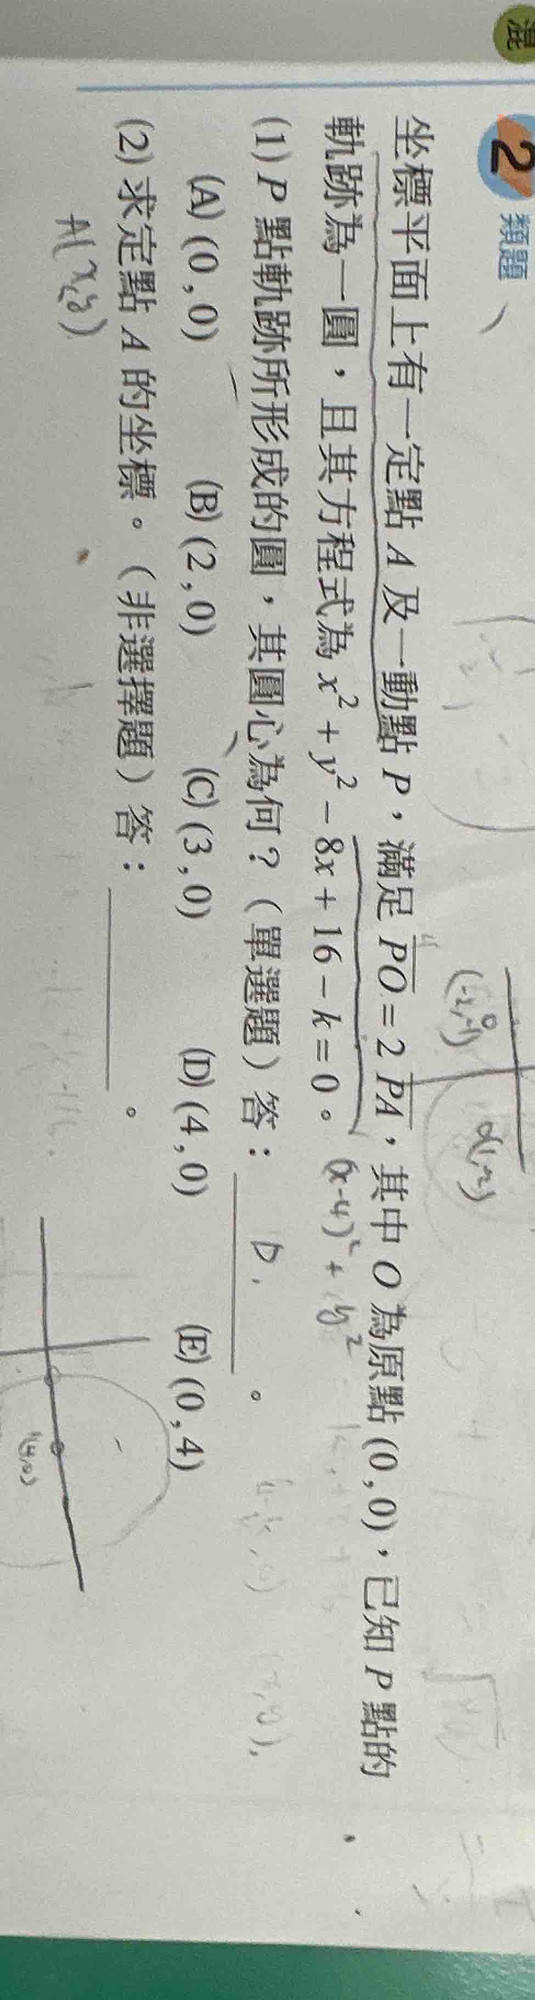 2 類題
坐標平面上有一定點 A 及一動點 P，滿足 PO = 2 PA，其中 O 為原點 (0 , 0)，已知 P 點的
軌跡為一圓，且其方程式為 x² + y² − 8x + 16 − k = 0。
(x-4)² + y²
(1) P 點軌跡所形成的圓，其圓心為何？（單選題）答： D 。
(A) (0 , 0) (B) (2 , 0) (C) (3 , 0) (D) (4 , 0) (E) (0 , 4)
(2) 求定點 A 的坐標。（非選擇題）答： 。
A(x,y)
(4,0)